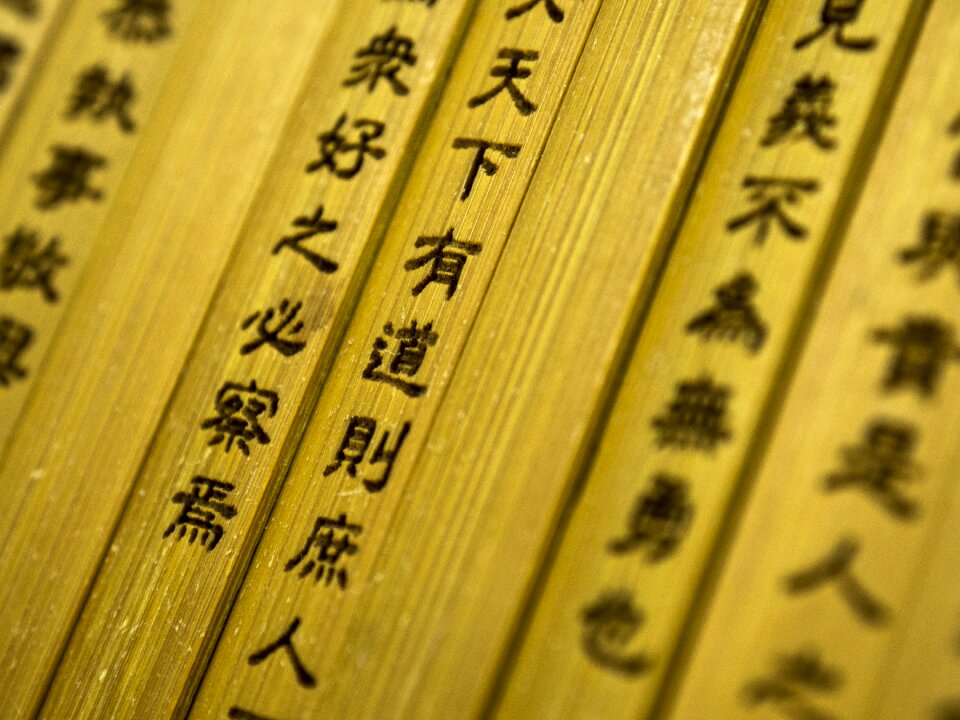 貴是人之
見義不為無勇也
天下有道則庶人
衆好之必察焉
恭執事敬與